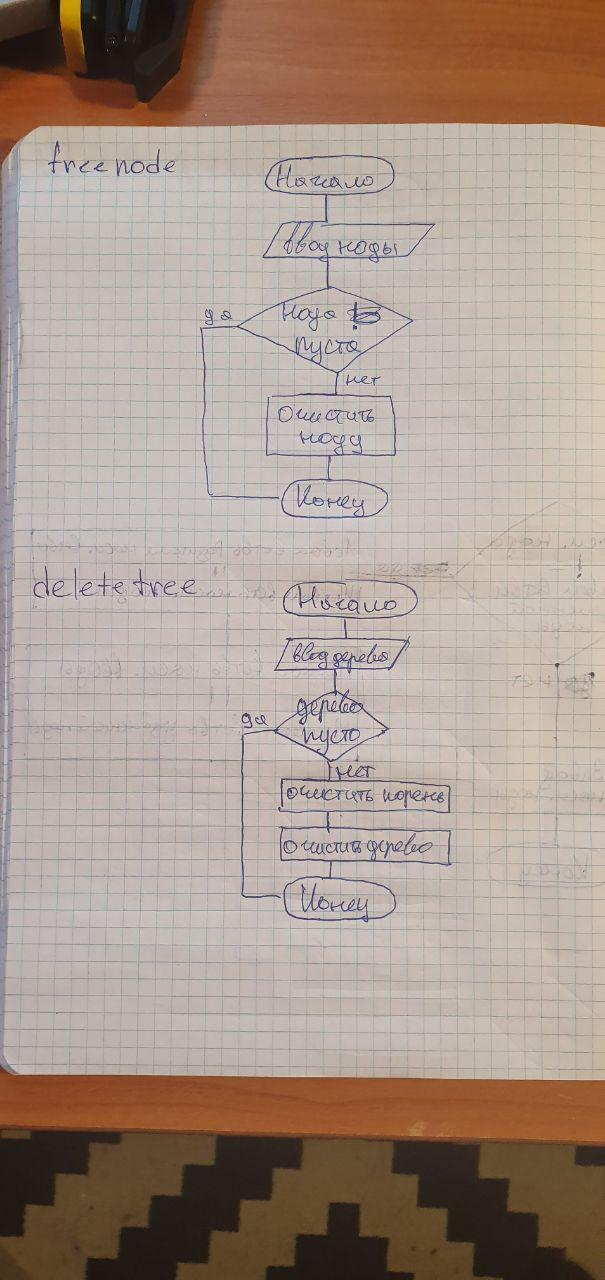 free node
Начало
Ввод ноды
да
нода
пуста
нет
Очистить
ноду
Конец
delete tree
Начало
Ввод дерева
да
дерево
пусто
нет
Очистить корень
Очистить дерево
Конец